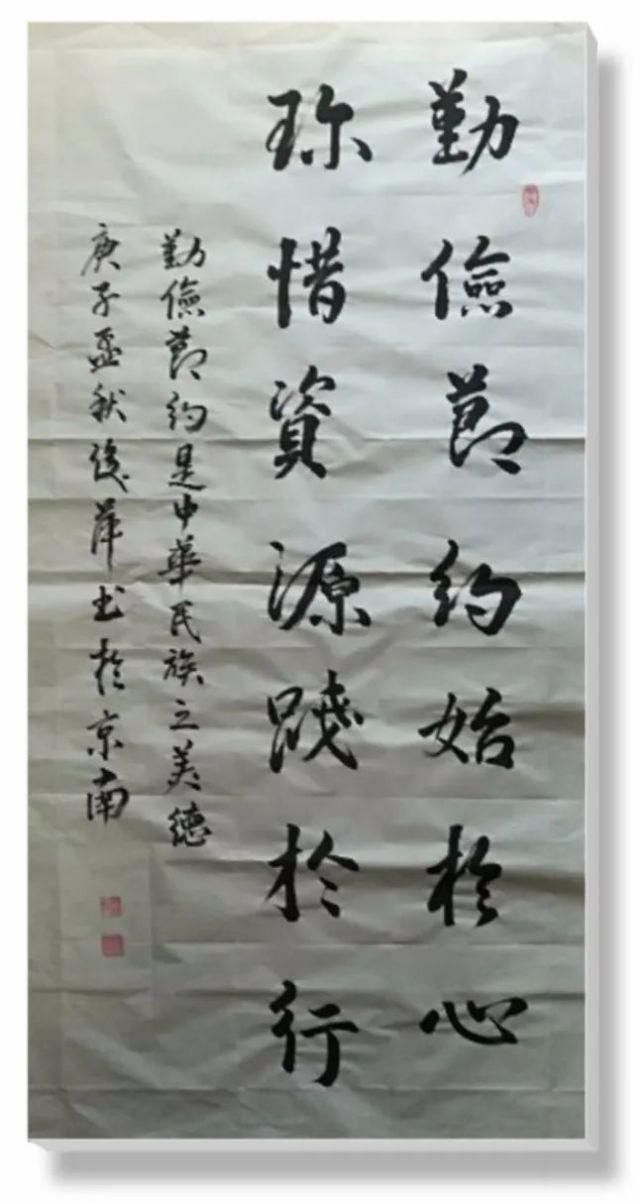 勤儉節約始於心
珎惜資源踐於行
勤儉節約是中華民族之美德
庚子孟秋後萍書於京南